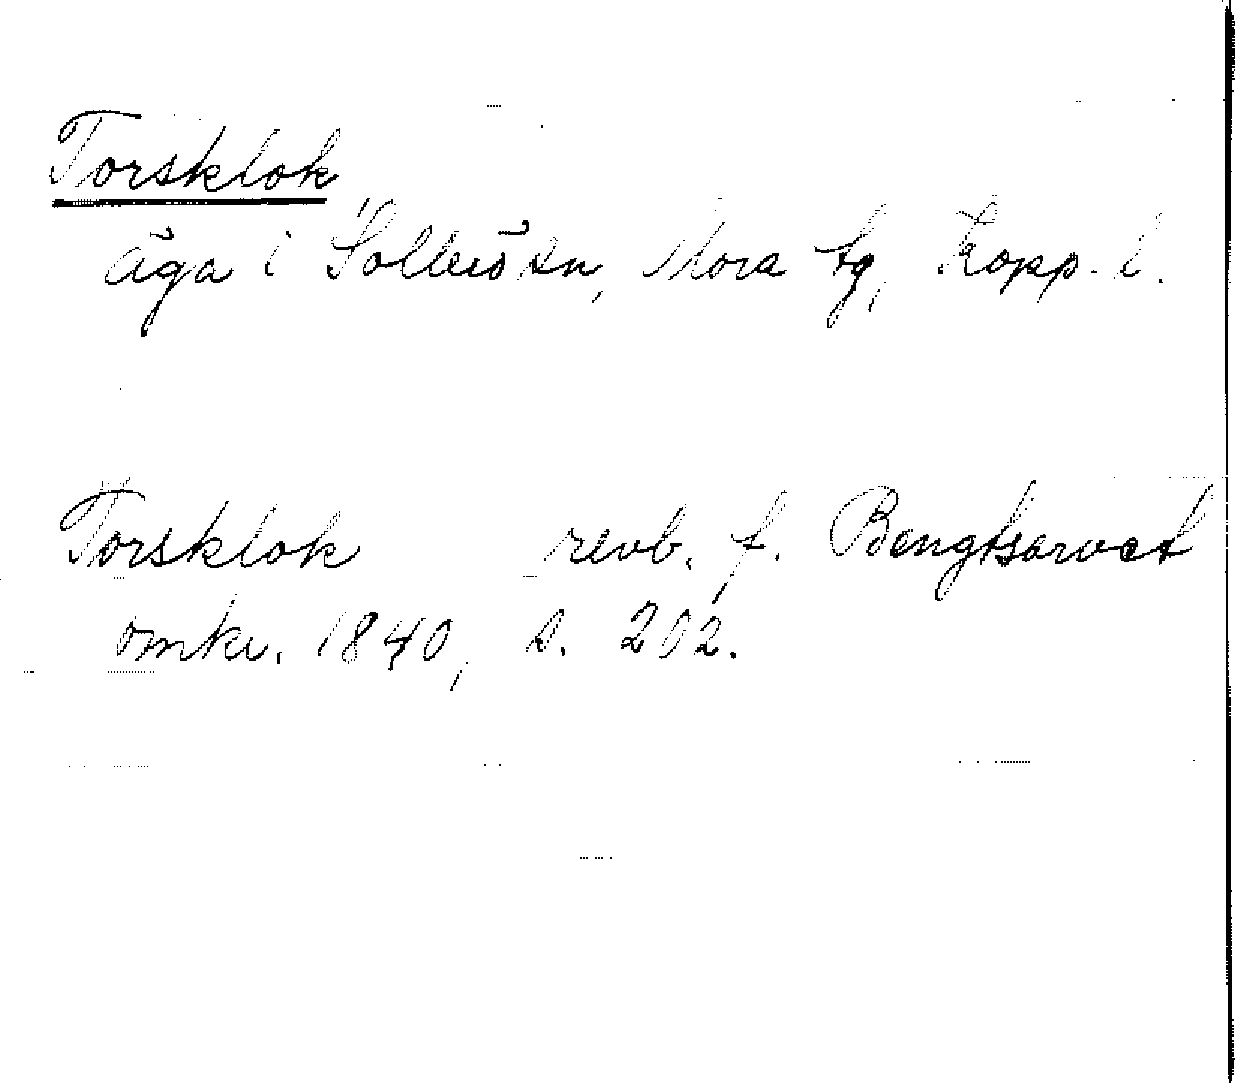 Torsklok
äga i Sollerö sn, Mora tg, Kopp. l.
Torsklok revb. f. Bengtsarvet
omkr. 1840, s. 202.